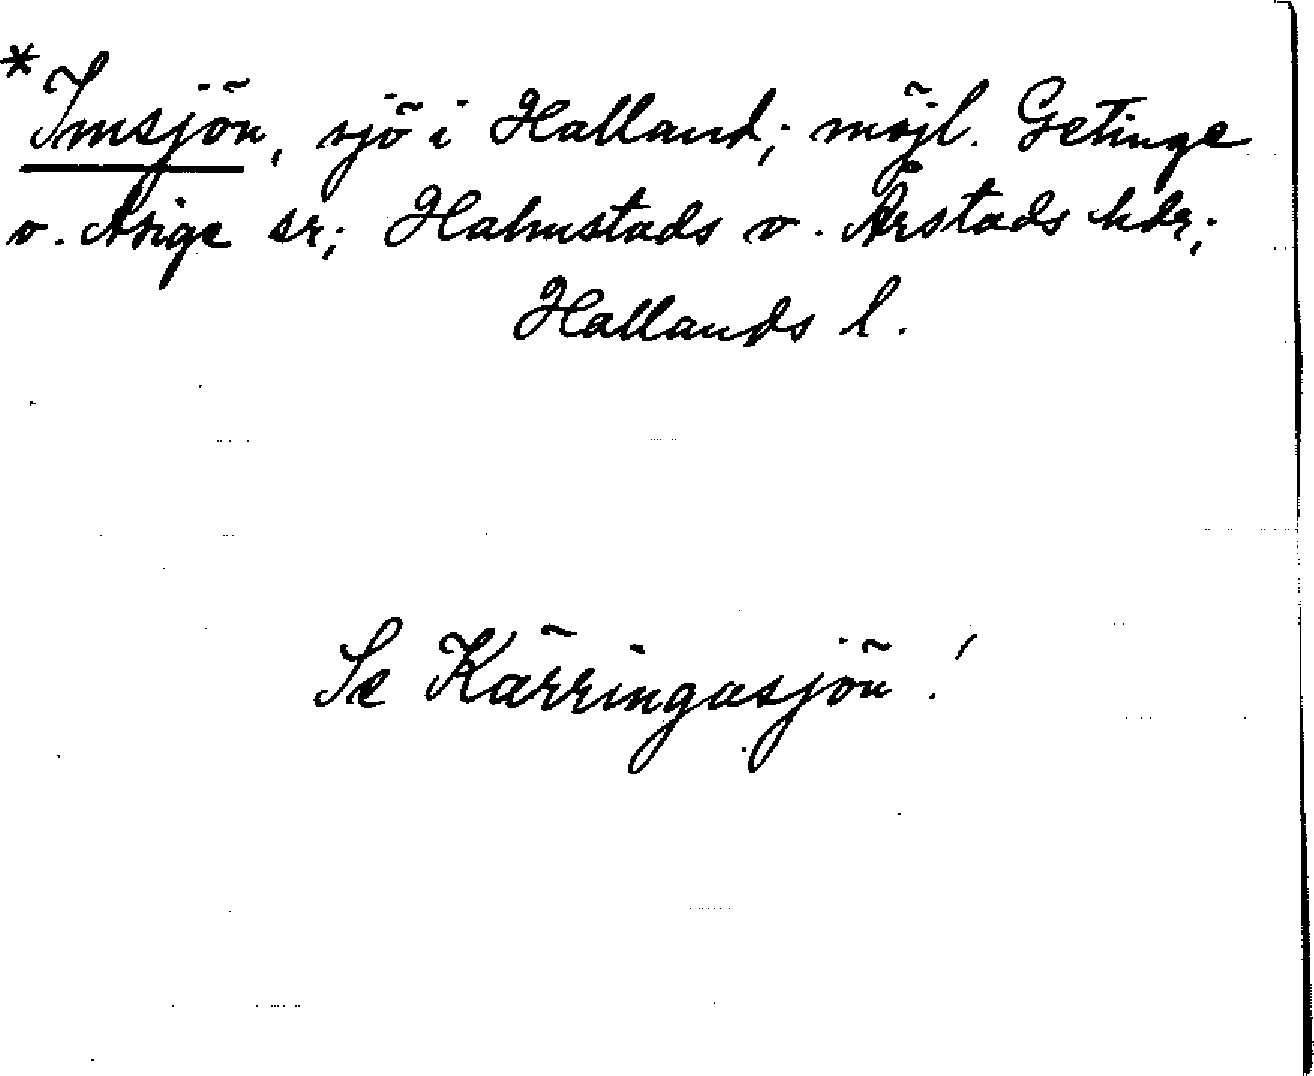 *Imsjön, sjö i Halland; möjl. Getinge
o. Asige sr; Halmstads o. Årstads hdr;
Hallands l.
Se Kärringasjön!